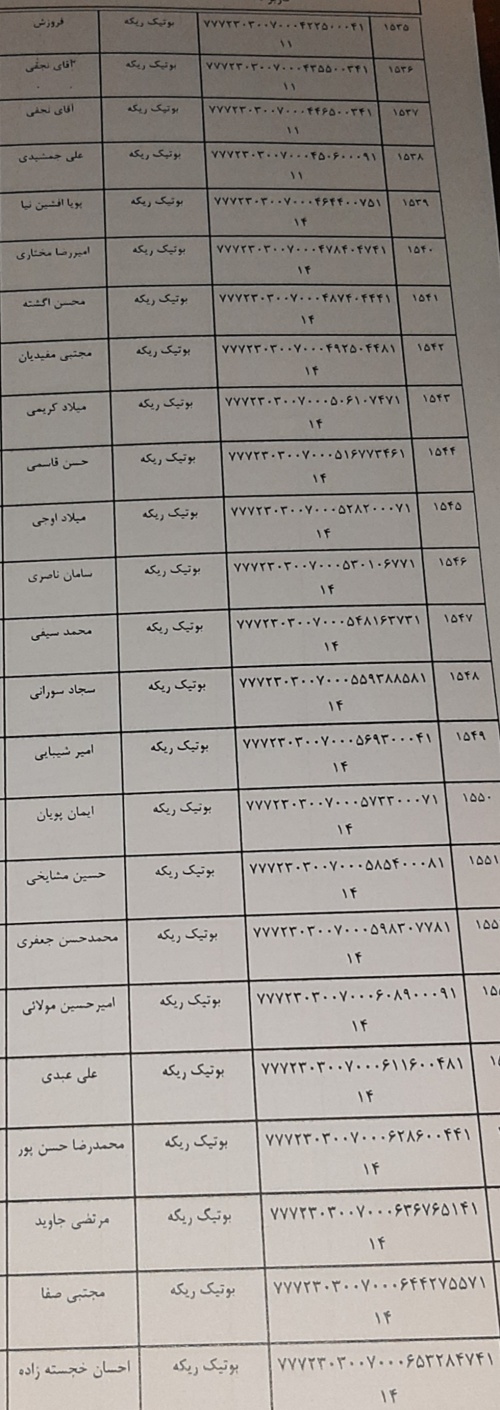 ۱۵۳۵ ۷۷۷۲۳۰۳۰۰۷۰۰۰۴۲۲۵۰۰۰۴۱ بوتیک ریکه فروزش
۱۱
۱۵۳۶ ۷۷۷۲۳۰۳۰۰۷۰۰۰۴۳۵۵۰۰۳۴۱ بوتیک ریکه آقای نجفی
۱۱
۱۵۳۷ ۷۷۷۲۳۰۳۰۰۷۰۰۰۴۴۶۵۰۰۳۴۱ بوتیک ریکه آقای نجفی
۱۱
۱۵۳۸ ۷۷۷۲۳۰۳۰۰۷۰۰۰۴۵۰۶۰۰۰۹۱ بوتیک ریکه علی جمشیدی
۱۱
۱۵۳۹ ۷۷۷۲۳۰۳۰۰۷۰۰۰۴۶۴۴۰۰۷۵۱ بوتیک ریکه پویا افشین نیا
۱۴
۱۵۴۰ ۷۷۷۲۳۰۳۰۰۷۰۰۰۴۷۸۴۰۴۷۴۱ بوتیک ریکه امیررضا مختاری
۱۴
۱۵۴۱ ۷۷۷۲۳۰۳۰۰۷۰۰۰۴۸۷۴۰۴۴۴۱ بوتیک ریکه محسن اگشته
۱۴
۱۵۴۲ ۷۷۷۲۳۰۳۰۰۷۰۰۰۴۹۲۵۰۴۴۸۱ بوتیک ریکه مجتبی مفیدیان
۱۴
۱۵۴۳ ۷۷۷۲۳۰۳۰۰۷۰۰۰۵۰۶۱۰۷۴۷۱ بوتیک ریکه میلاد کریمی
۱۴
۱۵۴۴ ۷۷۷۲۳۰۳۰۰۷۰۰۰۵۱۶۷۷۳۴۶۱ بوتیک ریکه حسن قاسمی
۱۴
۱۵۴۵ ۷۷۷۲۳۰۳۰۰۷۰۰۰۵۲۸۲۰۰۰۷۱ بوتیک ریکه میلاد اوجی
۱۴
۱۵۴۶ ۷۷۷۲۳۰۳۰۰۷۰۰۰۵۳۰۱۰۶۷۷۱ بوتیک ریکه سامان ناصری
۱۴
۱۵۴۷ ۷۷۷۲۳۰۳۰۰۷۰۰۰۵۴۸۱۶۳۷۳۱ بوتیک ریکه محمد سیفی
۱۴
۱۵۴۸ ۷۷۷۲۳۰۳۰۰۷۰۰۰۵۵۹۳۸۸۵۸۱ بوتیک ریکه سجاد سورانی
۱۴
۱۵۴۹ ۷۷۷۲۳۰۳۰۰۷۰۰۰۵۶۹۳۰۰۰۴۱ بوتیک ریکه امیر شیبایی
۱۴
۱۵۵۰ ۷۷۷۲۳۰۳۰۰۷۰۰۰۵۷۳۳۰۰۰۷۱ بوتیک ریکه ایمان پویان
۱۴
۱۵۵۱ ۷۷۷۲۳۰۳۰۰۷۰۰۰۵۸۵۴۰۰۰۸۱ بوتیک ریکه حسین مشایخی
۱۴
۷۷۷۲۳۰۳۰۰۷۰۰۰۵۹۸۳۰۷۷۸۱ بوتیک ریکه محمدحسن جعفری
۱۴
۷۷۷۲۳۰۳۰۰۷۰۰۰۶۰۸۹۰۰۰۹۱ بوتیک ریکه امیرحسین مولائی
۱۴
۷۷۷۲۳۰۳۰۰۷۰۰۰۶۱۱۶۰۰۴۸۱ بوتیک ریکه علی عبدی
۱۴
۷۷۷۲۳۰۳۰۰۷۰۰۰۶۲۸۶۰۰۴۴۱ بوتیک ریکه محمدرضا حسن پور
۱۴
۷۷۷۲۳۰۳۰۰۷۰۰۰۶۳۶۷۶۵۱۴۱ بوتیک ریکه مرتضی جاوید
۱۴
۷۷۷۲۳۰۳۰۰۷۰۰۰۶۴۴۲۷۵۵۷۱ بوتیک ریکه مجتبی صفا
۱۴
۷۷۷۲۳۰۳۰۰۷۰۰۰۶۵۳۲۸۴۷۴۱ بوتیک ریکه احسان خجسته زاده
۱۴